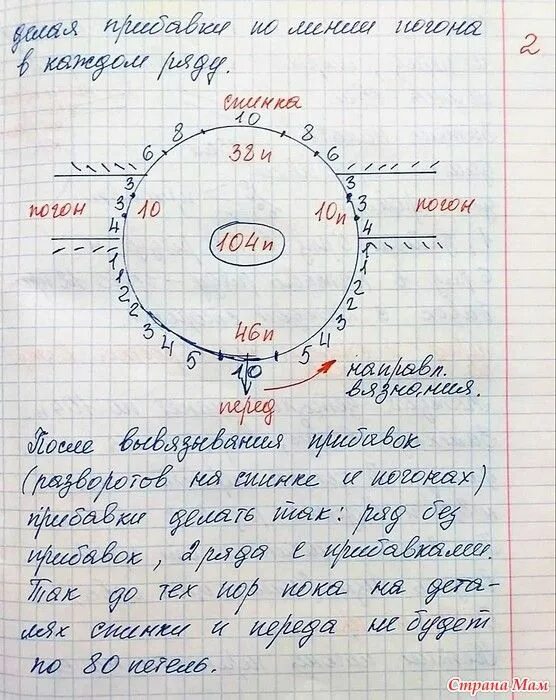 делая прибавки по линии погона
в каждом ряду.
2
спинка
10
8 8
6 6
38п
3 3
погон 3 10 10п 3 погон
4 4
104п
1 1
1 1
2 2
2 2
3 3
4 4
5 5
46п
10
направл.
вязнания.
перед
После вывязывания прибавок
(разворотов на спинке и погонах)
прибавки делать так: ряд без
прибавок, 2 ряда с прибавками.
Так до тех пор пока на дета-
лях спинки и переда не будет
по 80 петель.
Страна Мам